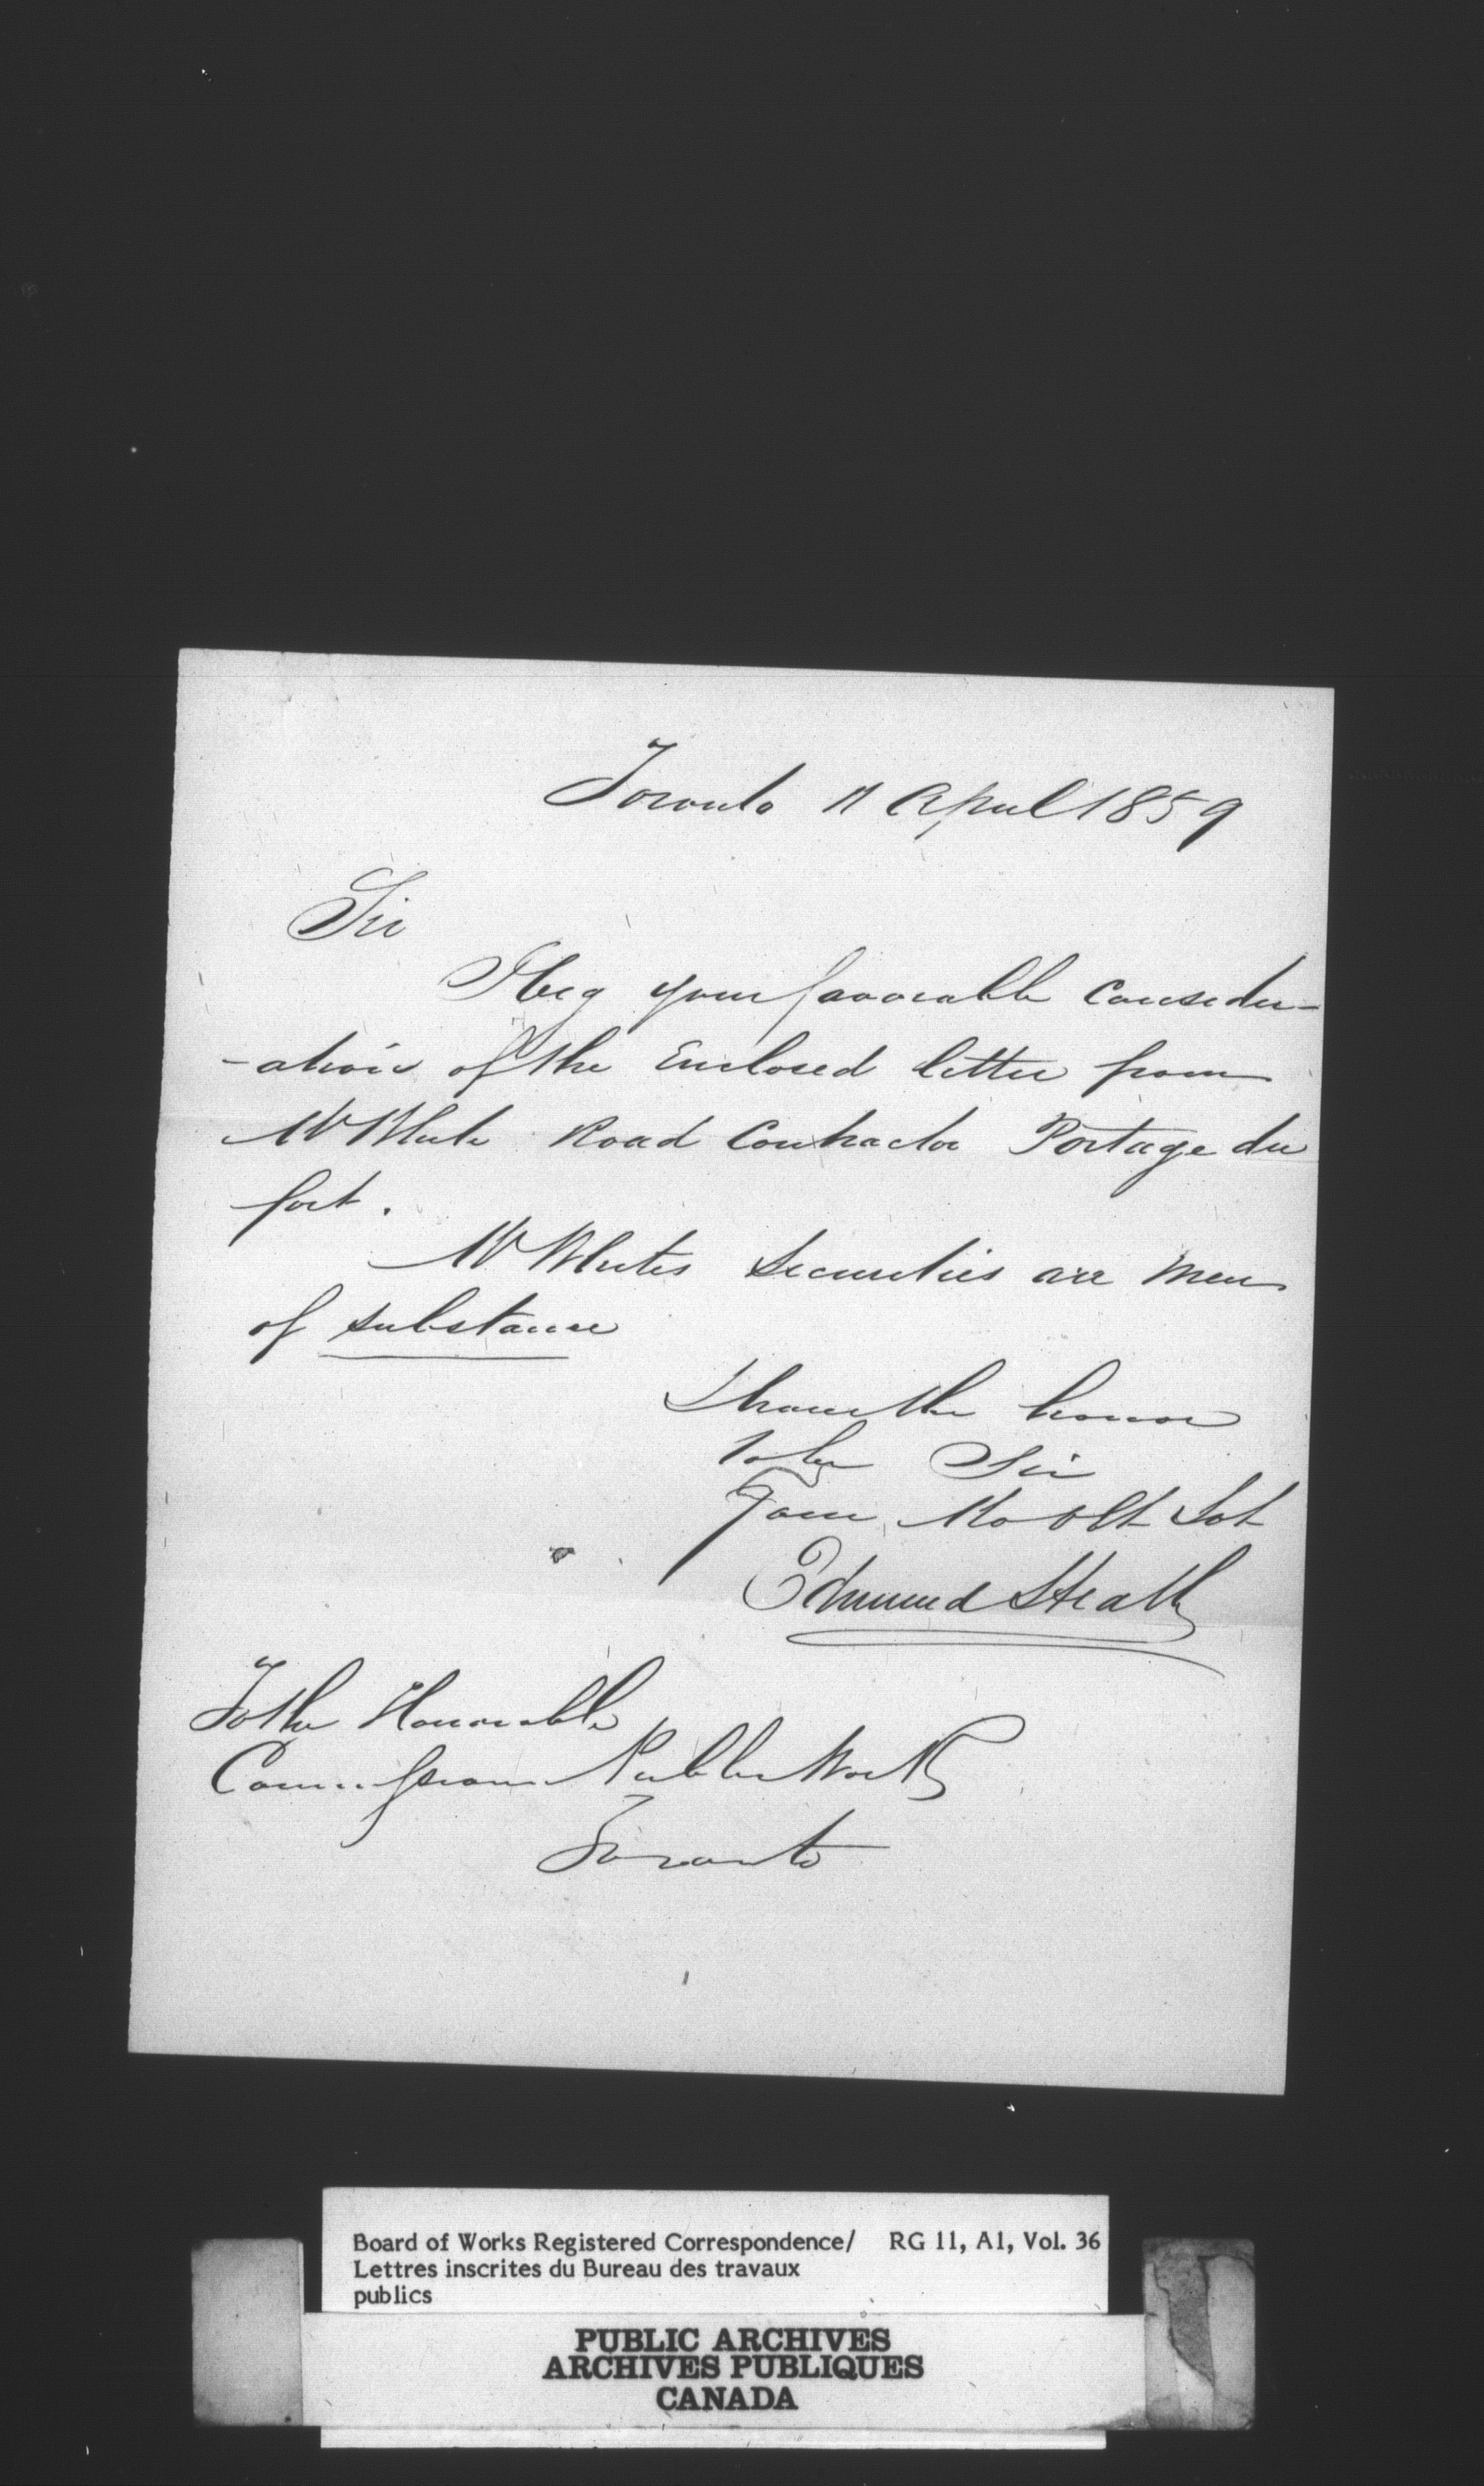 Toronto 11 April 1859
Sir
I beg your favorable consider-
-ation of the Enclosed letter from
Mr White Road Contractor Portage du
fort.
Mr Whites Securities are Men
of substance
I have the honor
to be Sir
Your Mo Obt Svt
Edmund Heath
To the Honorable
Commissioner Public Works
Toronto
Board of Works Registered Correspondence/ RG 11, A1, Vol. 36
Lettres inscrites du Bureau des travaux
publics
PUBLIC ARCHIVES
ARCHIVES PUBLIQUES
CANADA